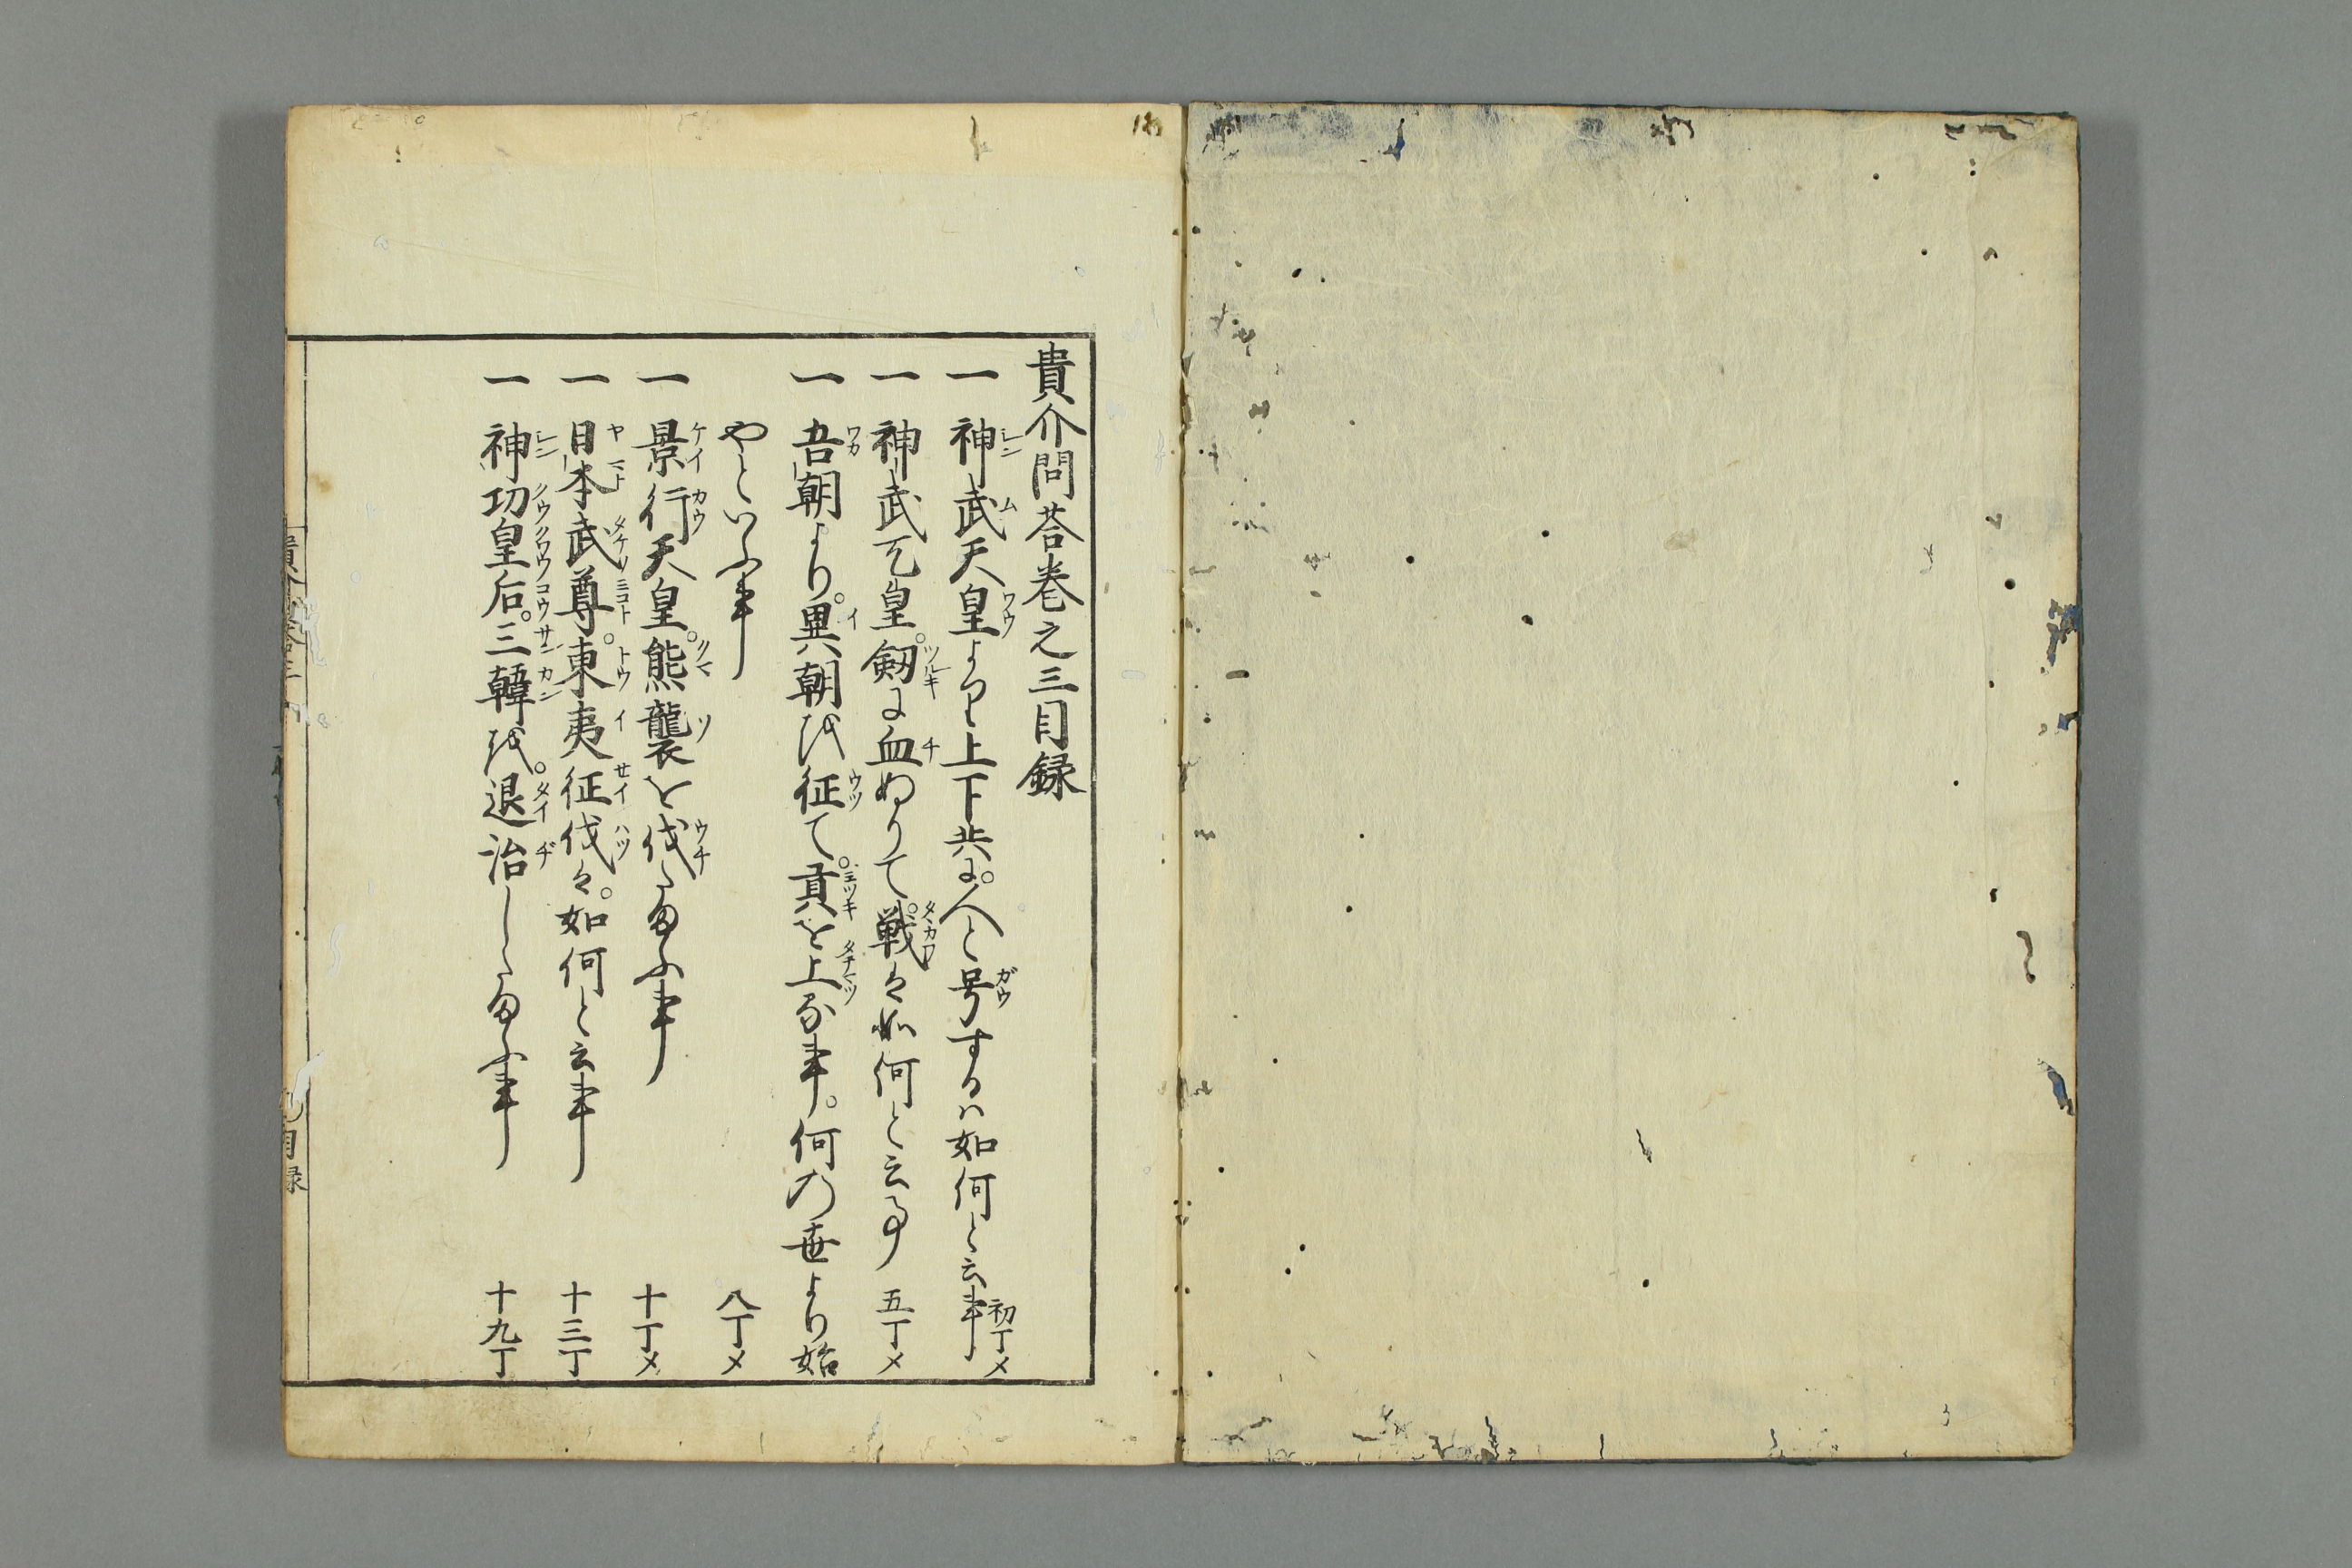 貴介問荅巻之三目録
一 神武天皇より上下共に。人と号するハ如何と云事 初丁メ
一 神武天皇。劔に血ぬりて。戦は如何と云事 五丁メ
一 吾朝より。異朝を征て。貢を上る事。何の世より始
やといふ事 八丁メ
一 景行天皇。熊襲を伐たまふ事 十丁メ
一 日本武尊。東夷征伐は。如何と云事 十三丁
一 神功皇后。三韓を。退治したまふ事 十九丁
目録